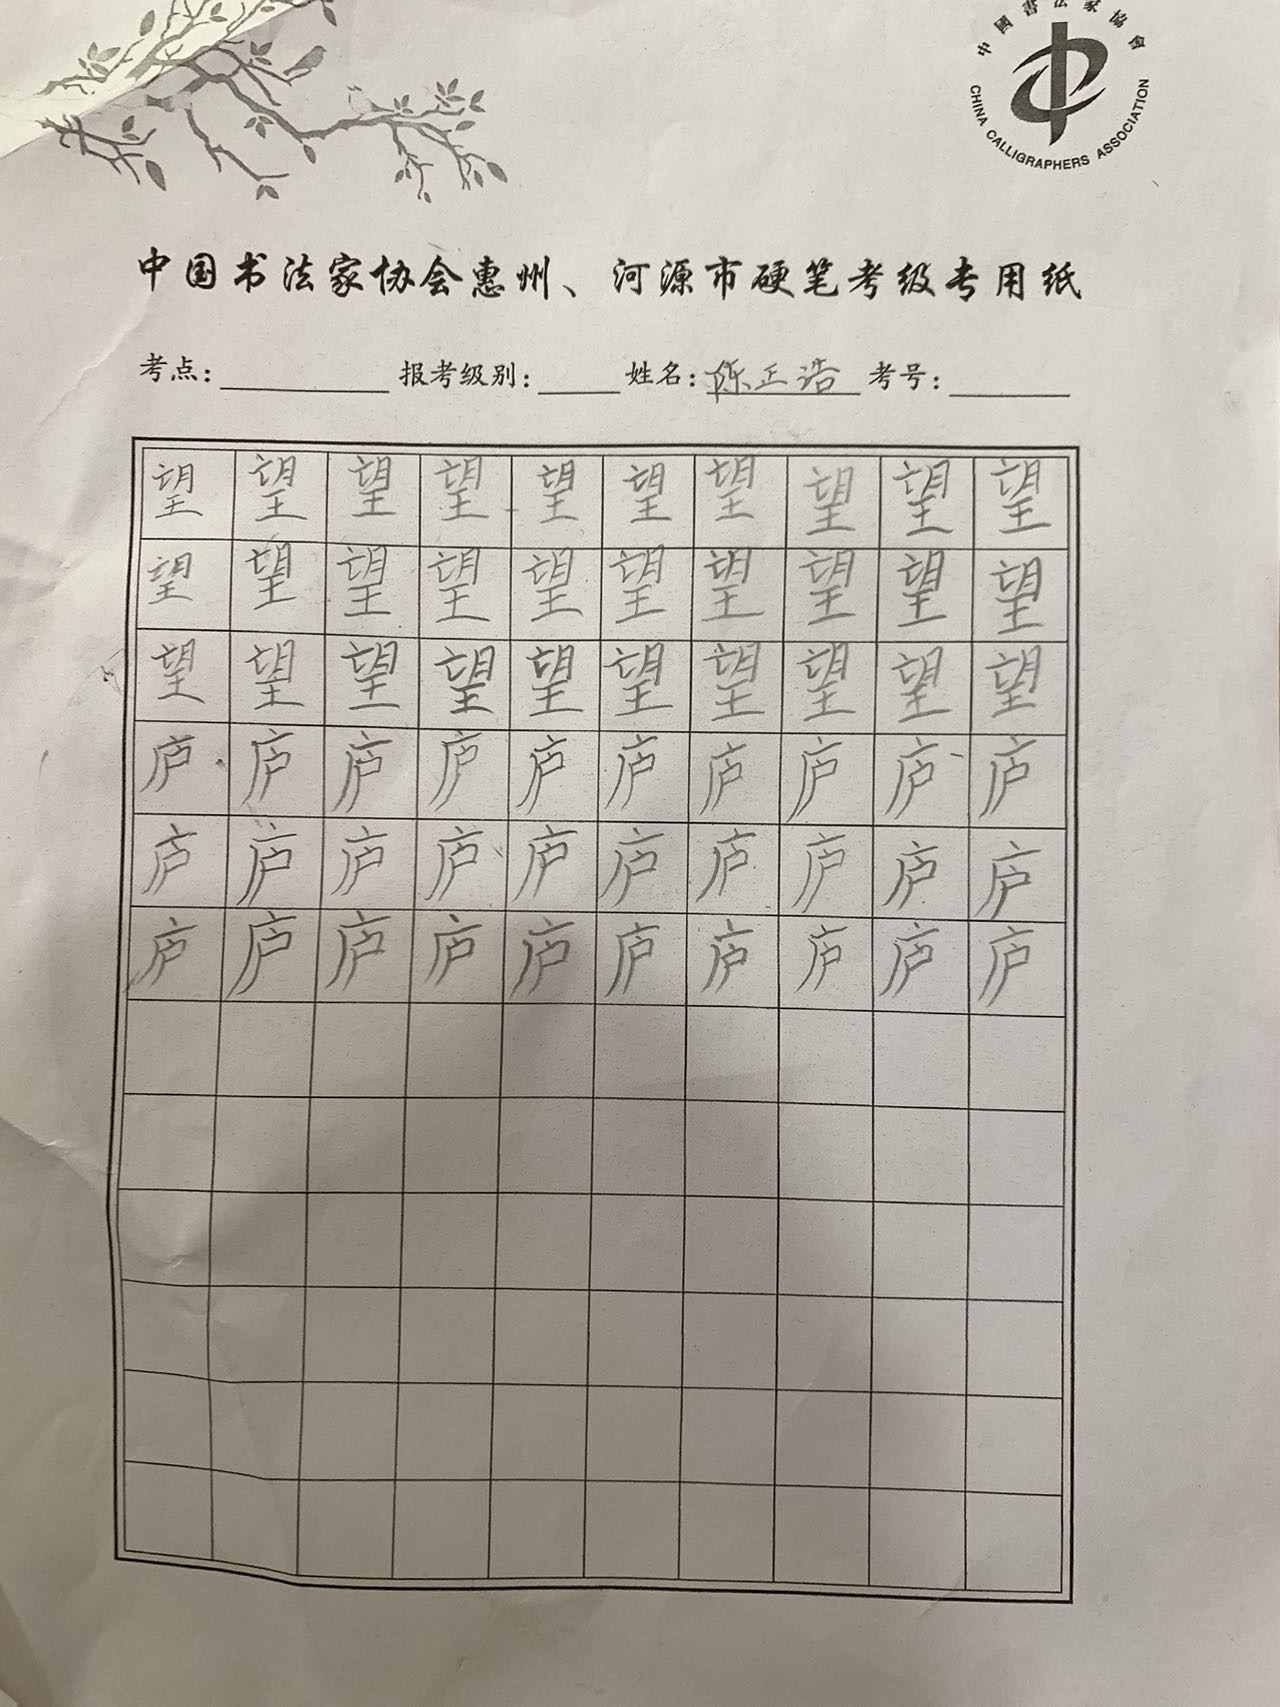 中國書法家協會
CHINA CALLIGRAPHERS ASSOCIATION
中国书法家协会惠州、河源市硬笔考级专用纸
考点: 报考级别: 姓名: 陈正浩 考号:
望望望望望望望望望望
望望望望望望望望望望
望望望望望望望望望望
庐庐庐庐庐庐庐庐庐庐
庐庐庐庐庐庐庐庐庐庐
庐庐庐庐庐庐庐庐庐庐